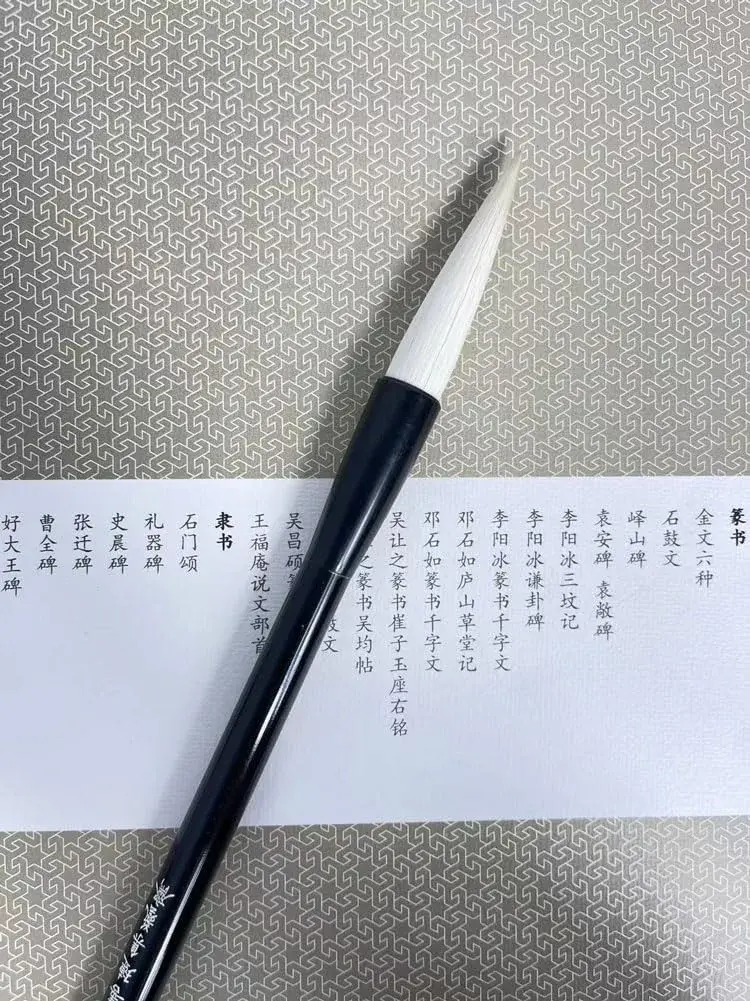 篆书
金文六种
石鼓文
峄山碑
袁安碑 袁敞碑
李阳冰三坟记
李阳冰谦卦碑
李阳冰篆书千字文
邓石如庐山草堂记
邓石如篆书千字文
吴让之篆书崔子玉座右铭
之篆书吴均帖
鼓文
吴昌硕篆
王福庵说文部首
隶书
石门颂
礼器碑
史晨碑
张迁碑
曹全碑
好大王碑